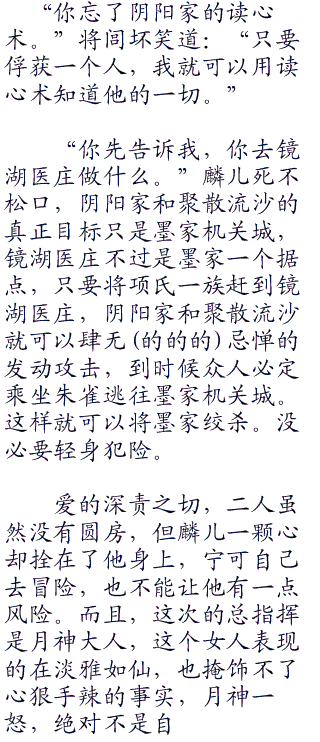 “你忘了阴阳家的读心
术。”将闾坏笑道：“只要
俘获一个人，我就可以用读
心术知道他的一切。”
“你先告诉我，你去镜
湖医庄做什么。”麟儿死不
松口，阴阳家和聚散流沙的
真正目标只是墨家机关城，
镜湖医庄不过是墨家一个据
点，只要将项氏一族赶到镜
湖医庄，阴阳家和聚散流沙
就可以肆无(的的的)忌惮的
发动攻击，到时候众人必定
乘坐朱雀逃往墨家机关城。
这样就可以将墨家绞杀。没
必要轻身犯险。
爱的深责之切，二人虽
然没有圆房，但麟儿一颗心
却拴在了他身上，宁可自己
去冒险，也不能让他有一点
风险。而且，这次的总指挥
是月神大人，这个女人表现
的在淡雅如仙，也掩饰不了
心狠手辣的事实，月神一
怒，绝对不是自